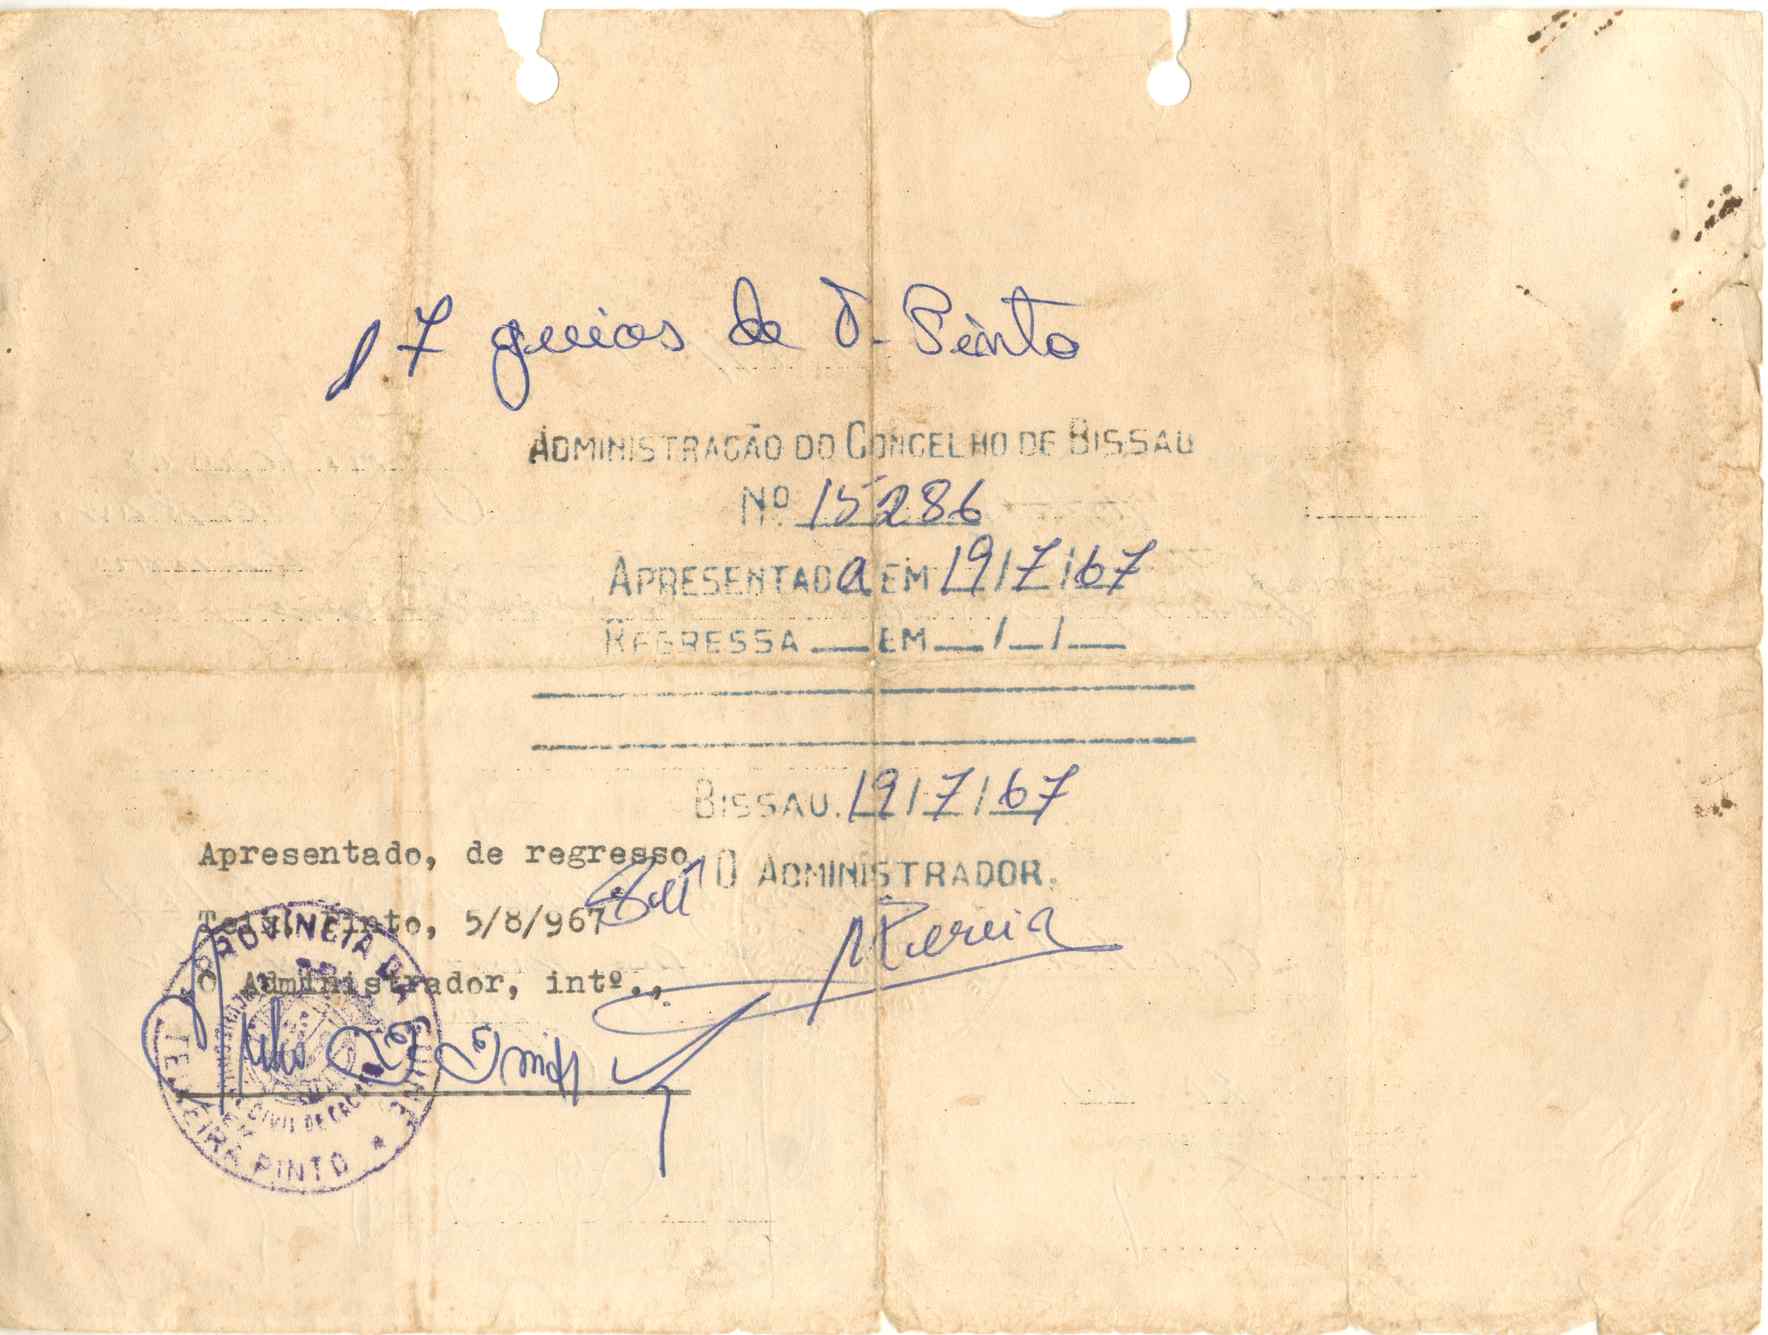 17 guias de T. Pinto
ADMINISTRAÇÃO DO CONCELHO DE BISSAU
Nº 15286
APRESENTADa EM 19/7/67
REGRESSA __ EM __/__/__
BISSAU, 19/7/67
O ADMINISTRADOR,
Apresentado, de regresso
Teix. Pinto, 5/8/967
O Administrador, intº.,
PROVÍNCIA DA GUINÉ
CIVIL DE
TEIXEIRA PINTO *